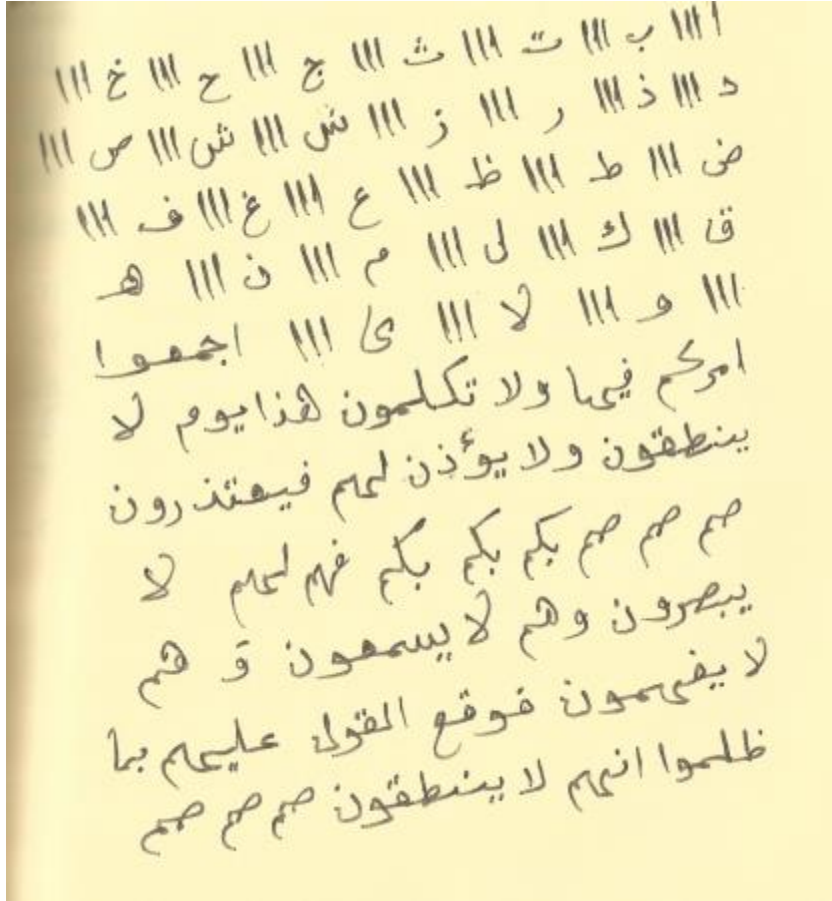 ا ااا ب ااا ت ااا ث ااا ج ااا ح ااا خ ااا
د ااا ذ ااا ر ااا ز ااا ش ااا ش ااا ص ااا
ض ااا ط ااا ظ ااا ع ااا غ ااا ف ااا
ق ااا ك ااا ل ااا م ااا ن ااا هـ
ااا و ااا لا ااا ى ااا اجمعوا
امركم فيها ولا تكلمون هذا يوم لا
ينطقون ولا يؤذن لهم فيعتذرون
صم صم صم بكم بكم بكم فهم لهم لا
يبصرون وهم لا يسمعون و هم
لا يفهمون فوقع القول عليهم بما
ظلموا انهم لا ينطقون صم صم صم